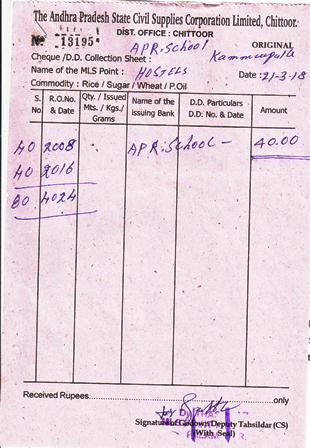 The Andhra Pradesh State Civil Supplies Corporation Limited, Chittoor.
DIST. OFFICE : CHITTOOR
№ 13195 APR.School ORIGINAL
Cheque /D.D. Collection Sheet :
Name of the MLS Point : HOSTELS Date : 21-3-18
Commodity : Rice / Sugar / Wheat / P.Oil
S. No. R.O.No. & Date Qty. / Issued Mts. / Kgs./ Grams Name of the issuing Bank D.D. Particulars D.D. No. & Date Amount
40 2008 APR.School — 40.00
40 2016
80 4024
Received Rupees........only
Signature of Godown/Deputy Tahsildar (CS)
(With Seal)